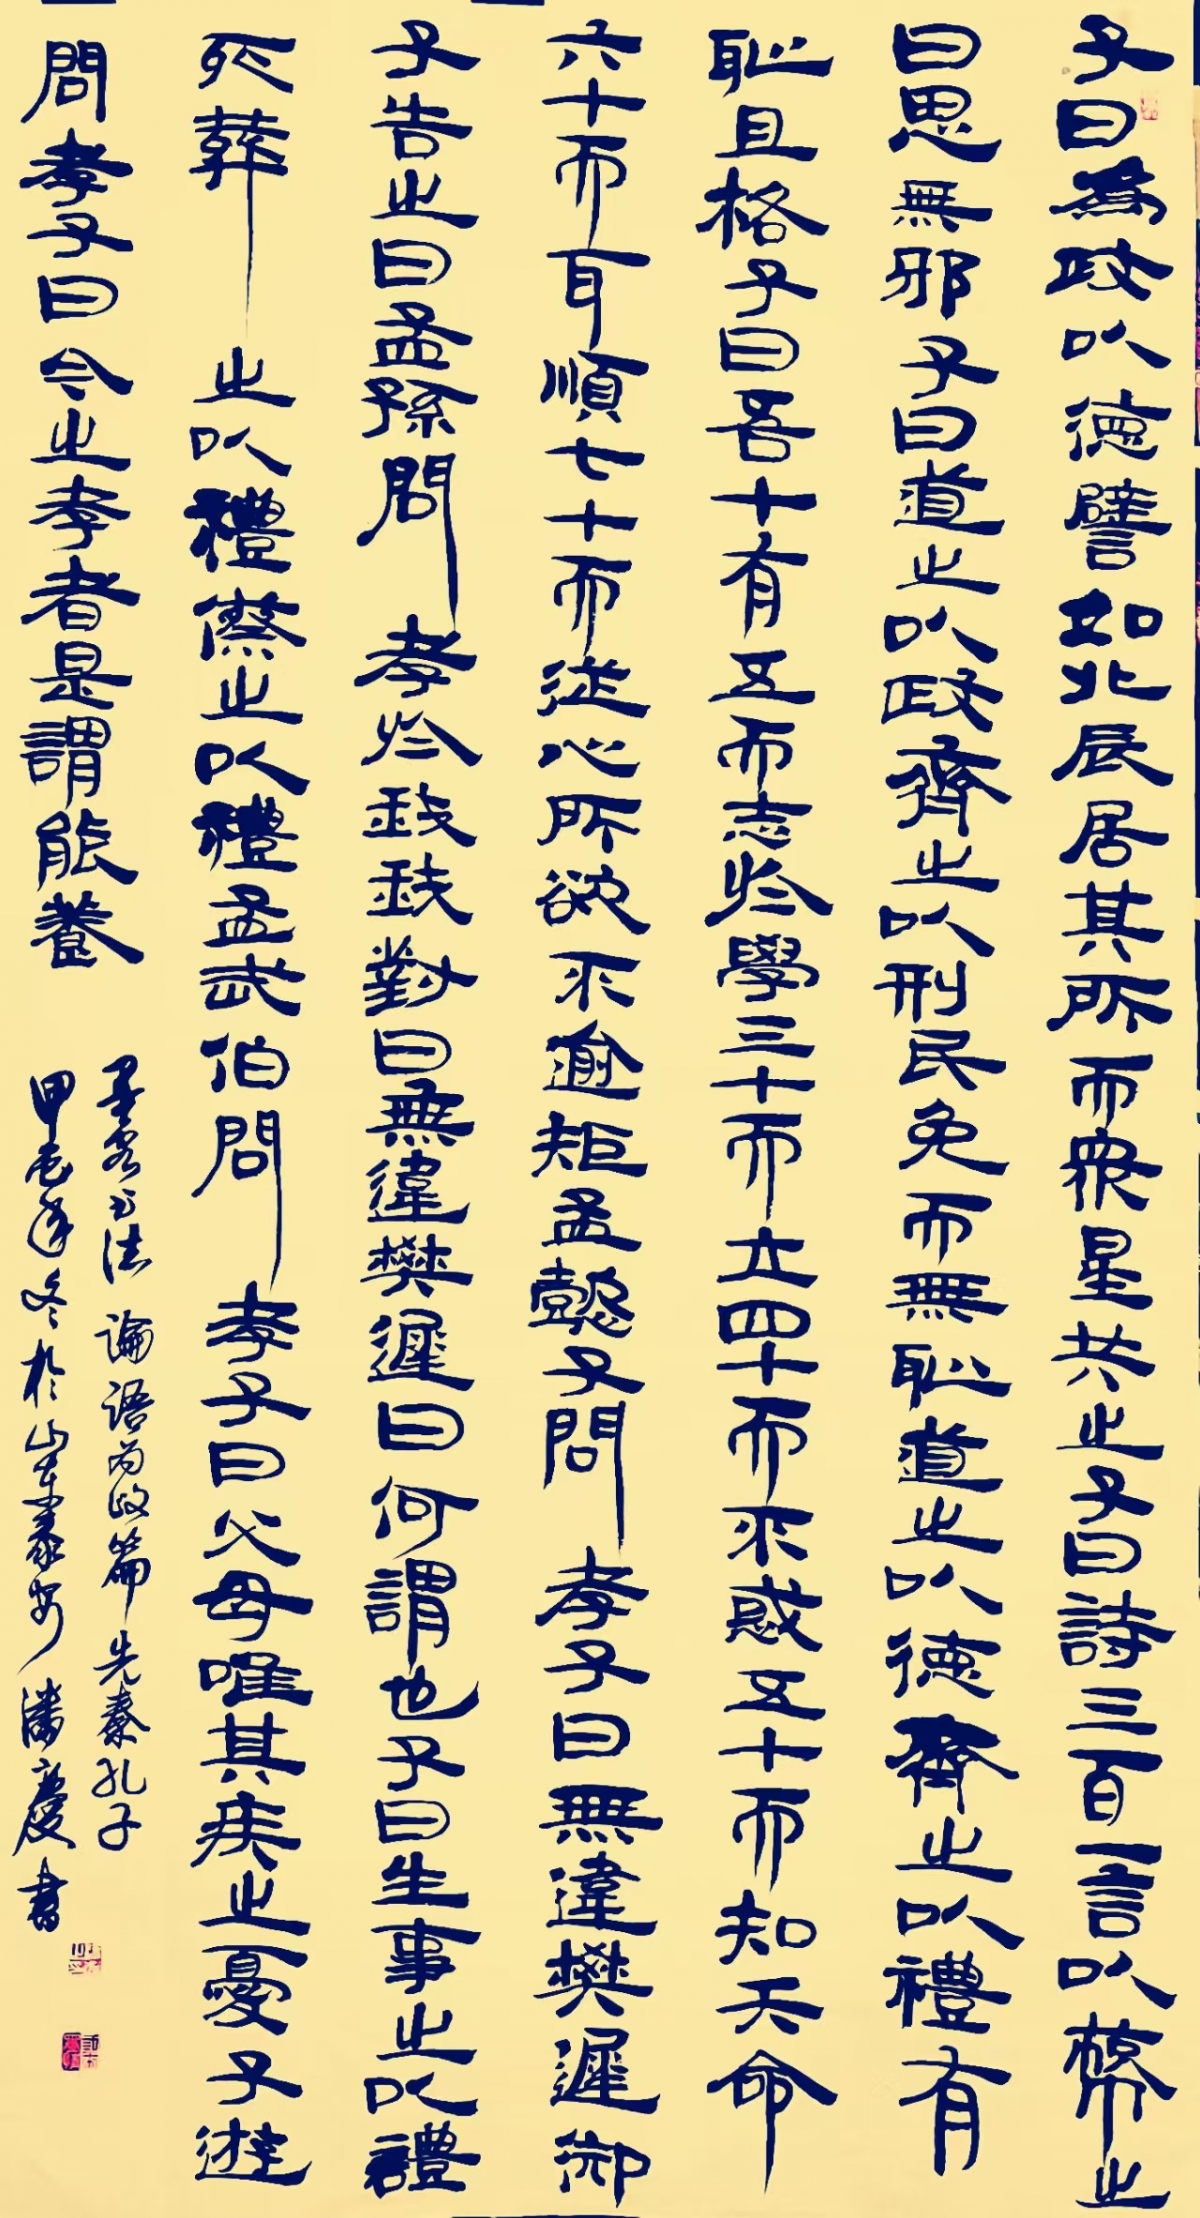 子曰為政以德譬如北辰居其所而衆星共之子曰詩三百一言以蔽之
曰思無邪子曰道之以政齊之以刑民免而無恥道之以德齊之以禮有
恥且格子曰吾十有五而志於學三十而立四十而不惑五十而知天命
六十而耳順七十而從心所欲不逾矩孟懿子問孝子曰無違樊遲御
子告之曰孟孫問孝於我我對曰無違樊遲曰何謂也子曰生事之以禮
死葬之以禮祭之以禮孟武伯問孝子曰父母唯其疾之憂子遊
問孝子曰今之孝者是謂能養
墨客书法 論語為政篇 先秦孔子
甲辰年冬於山東泰安 潘慶書